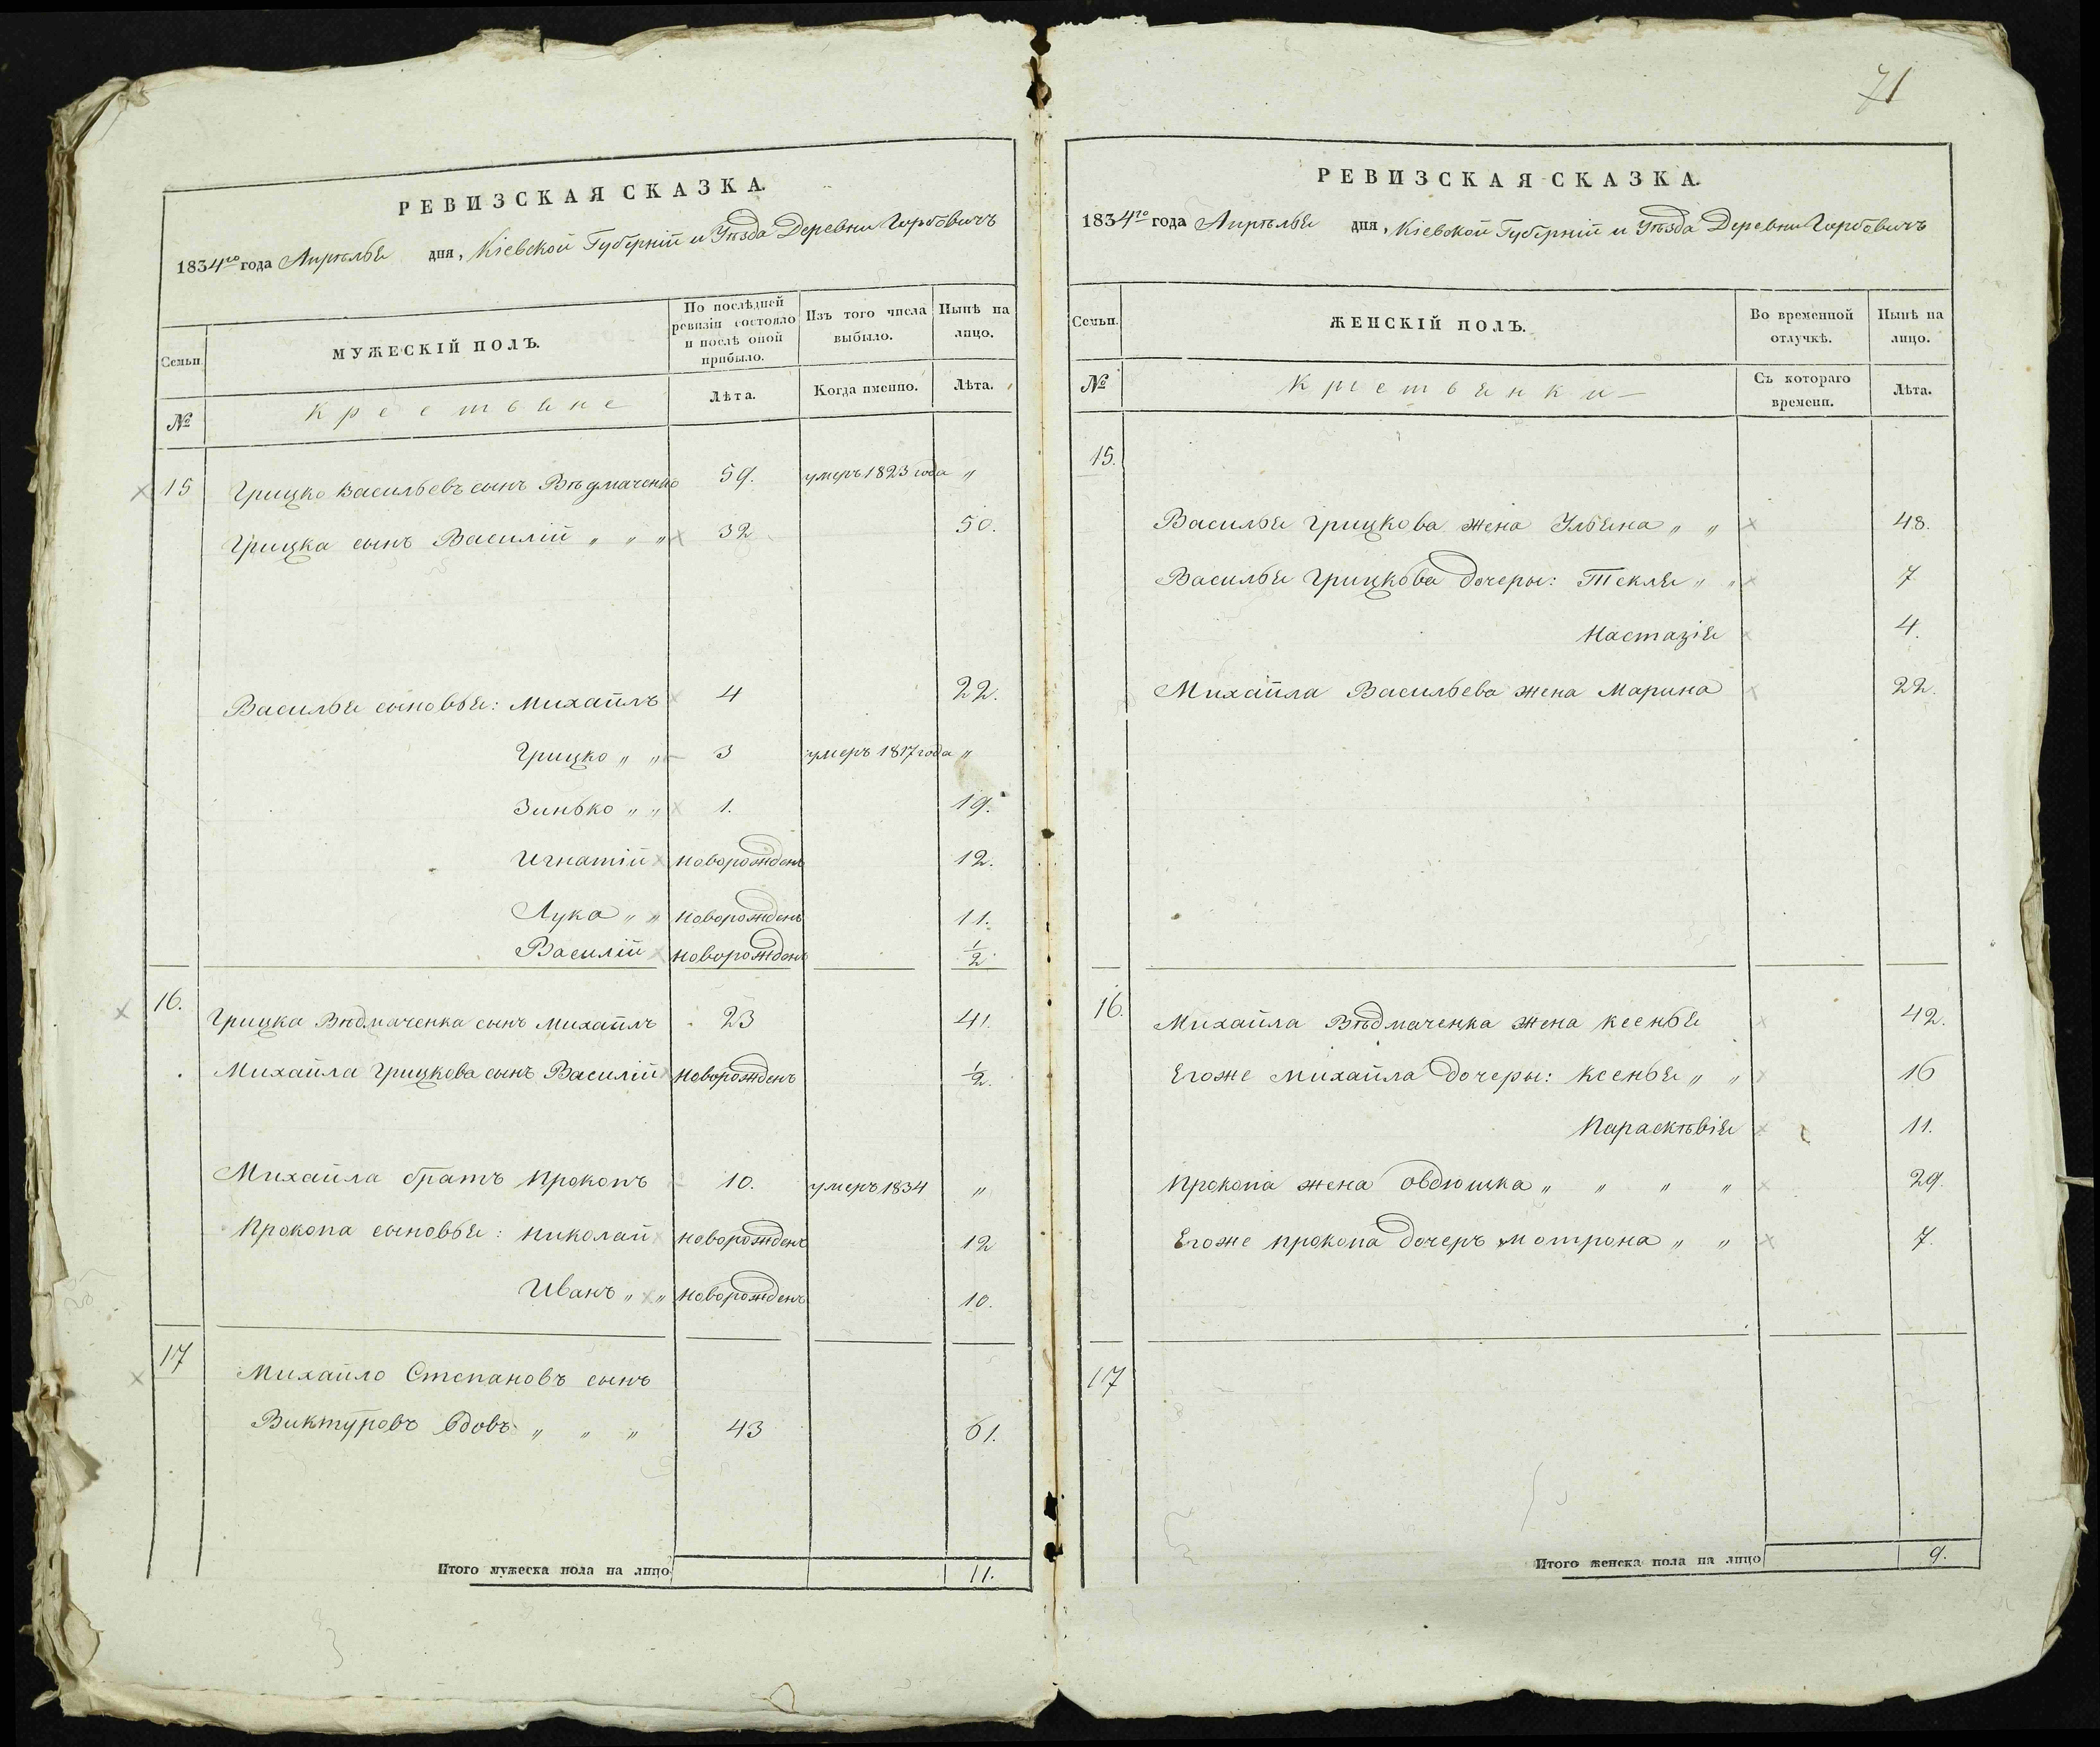 РЕВИЗСКАЯ СКАЗКА.
1834го года Апрѣлья дня, Кіевской Губерніи и Уѣзда Деревни Горбовичъ
Семьи.
МУЖЕСКІЙ ПОЛЪ.
По послѣдней ревизіи состояло и послѣ оной прибыло.
Изъ того числа выбыло.
Нынѣ на лицо.
№
Крестьяне
Лѣта.
Когда именно.
Лѣта.
15 Грицко Васильевъ сынъ Вѣдмаченко 59. умеръ 1823 года "
Грицка сынъ Василій " " " 32 50.
Василья сыновья: Михайлъ 4 22.
Грицко " " 3 умеръ 1817 года "
Зинько " " 1. 19.
Игнатій новорожденъ 12.
Лука " " новорожденъ 11.
Василій новорожденъ 1/2
16. Грицка Вѣдмаченка сынъ Михайлъ 23 41.
Михайла Грицкова сынъ Василій новорожденъ 1/2.
Михайла братъ Прокопъ 10. умеръ 1834 "
Прокопа сыновья: Николай новорожденъ 12
Иванъ " " новорожденъ 10.
17 Михайло Степановъ сынъ
Виктуровъ вдовъ " " " 43 61.
Итого мужеска пола на лицо 11.
71
РЕВИЗСКАЯ СКАЗКА.
1834го года Апрѣлья дня, Кіевской Губерніи и Уѣзда Деревни Горбовичъ
Семьи.
ЖЕНСКІЙ ПОЛЪ.
Во временной отлучкѣ.
Нынѣ на лицо.
№
Крестьянки
Съ котораго времени.
Лѣта.
15.
Василья Грицкова жена Ульяна " " 48.
Василья Грицкова дочеры: Текля " " 7
Настазія 4.
Михайла Васильева жена Марина 22.
16. Михайла Вѣдмаченка жена Ксенья 42.
Егоже Михайла дочеры: Ксенья " " 16
Параскѣвія 11.
Прокопа жена Овдюшка " " " " 29.
Егоже Прокопа дочеръ Мотрона " " 7.
17
Итого женска пола на лицо 9.